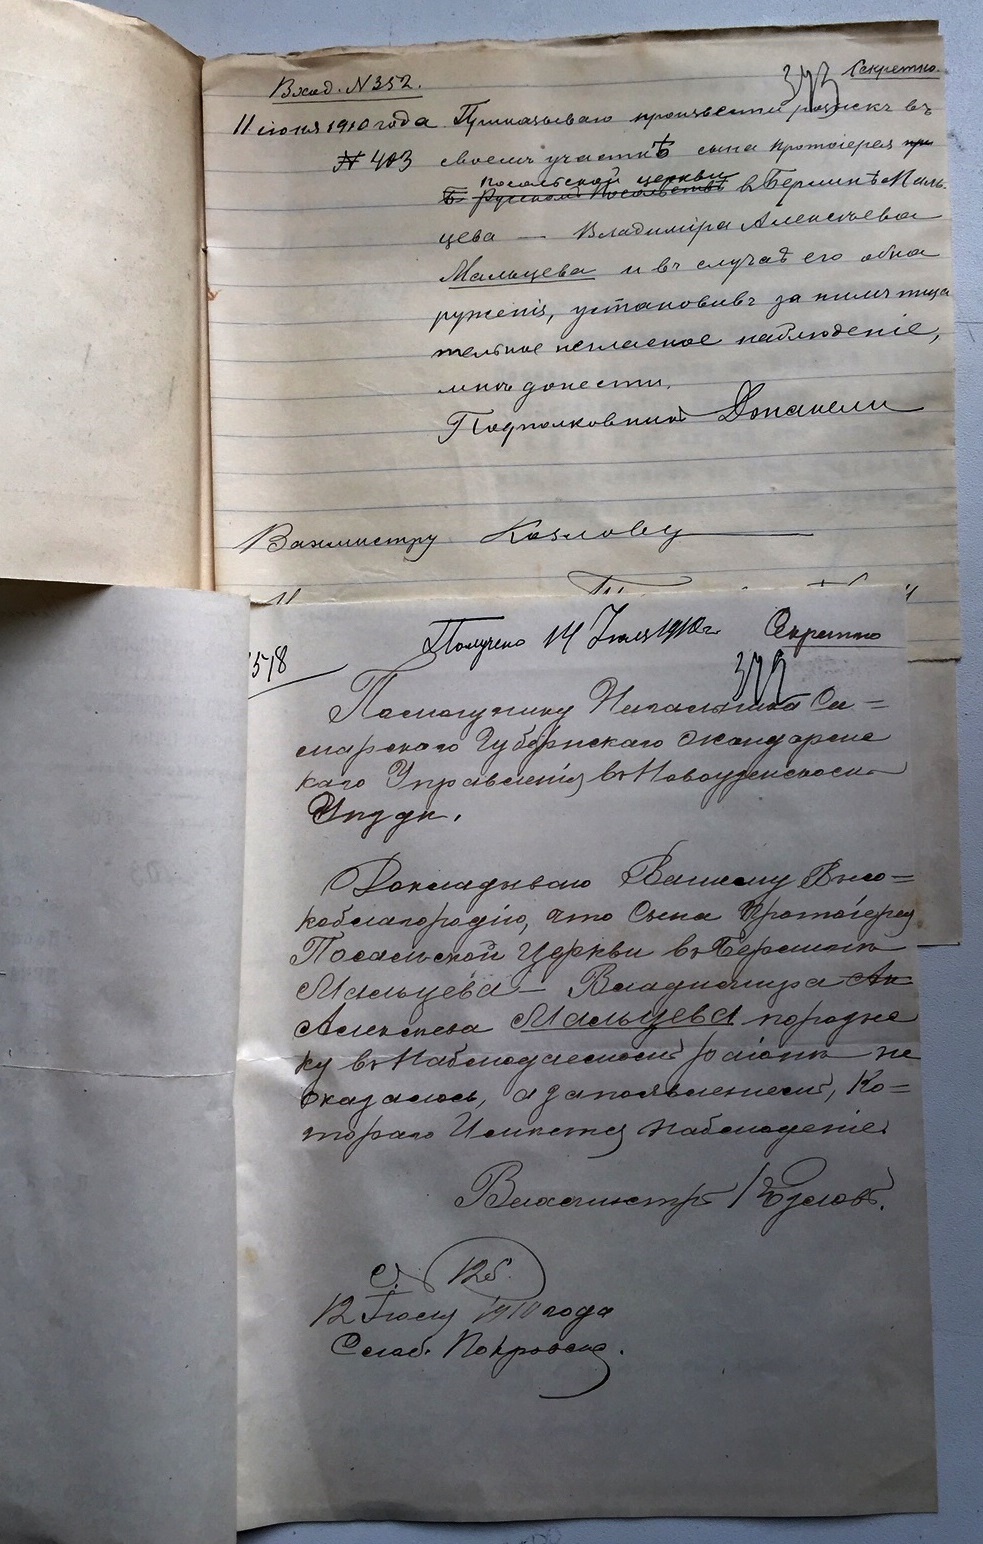 Вход. N 352.
373
Секретно.
11 іюня 1910 года
Приказываю произвести розыскъ въ
N 403
своемъ участкѣ сына протоіерея при
посольской церкви
Б. Русскомъ Посольствѣ въ Берлинѣ Маль-
цева — Владиміра Алексѣева
Мальцева и въ случаѣ его обна
руженія, установивъ за нимъ тща
тельное негласное наблюденіе,
мнѣ донести.
Подполковникъ
Вахмистру Козлову
578
Получено 14 Іюля 1910 г.
Секретно
372
Помощнику Начальника Са=
марскаго Губернскаго Жандармс
каго Управленія въ Новоузенскомъ
Уѣздѣ.
Докладываю Вашему Высо=
коблагородію, что Сына Протоіерея
Посольской Церкви въ Берлинѣ
Мальцева — Владимира Ал
Алексѣева Мальцева порозыс
ку въ Наблюдаемомъ раіонѣ не
оказалось, а запоявленіемъ, Ко=
тораго Имѣется наблюденіе.
Вахмистръ Козловъ.
С. 126.
12 Іюля 1910 года
Слоб. Покровск.